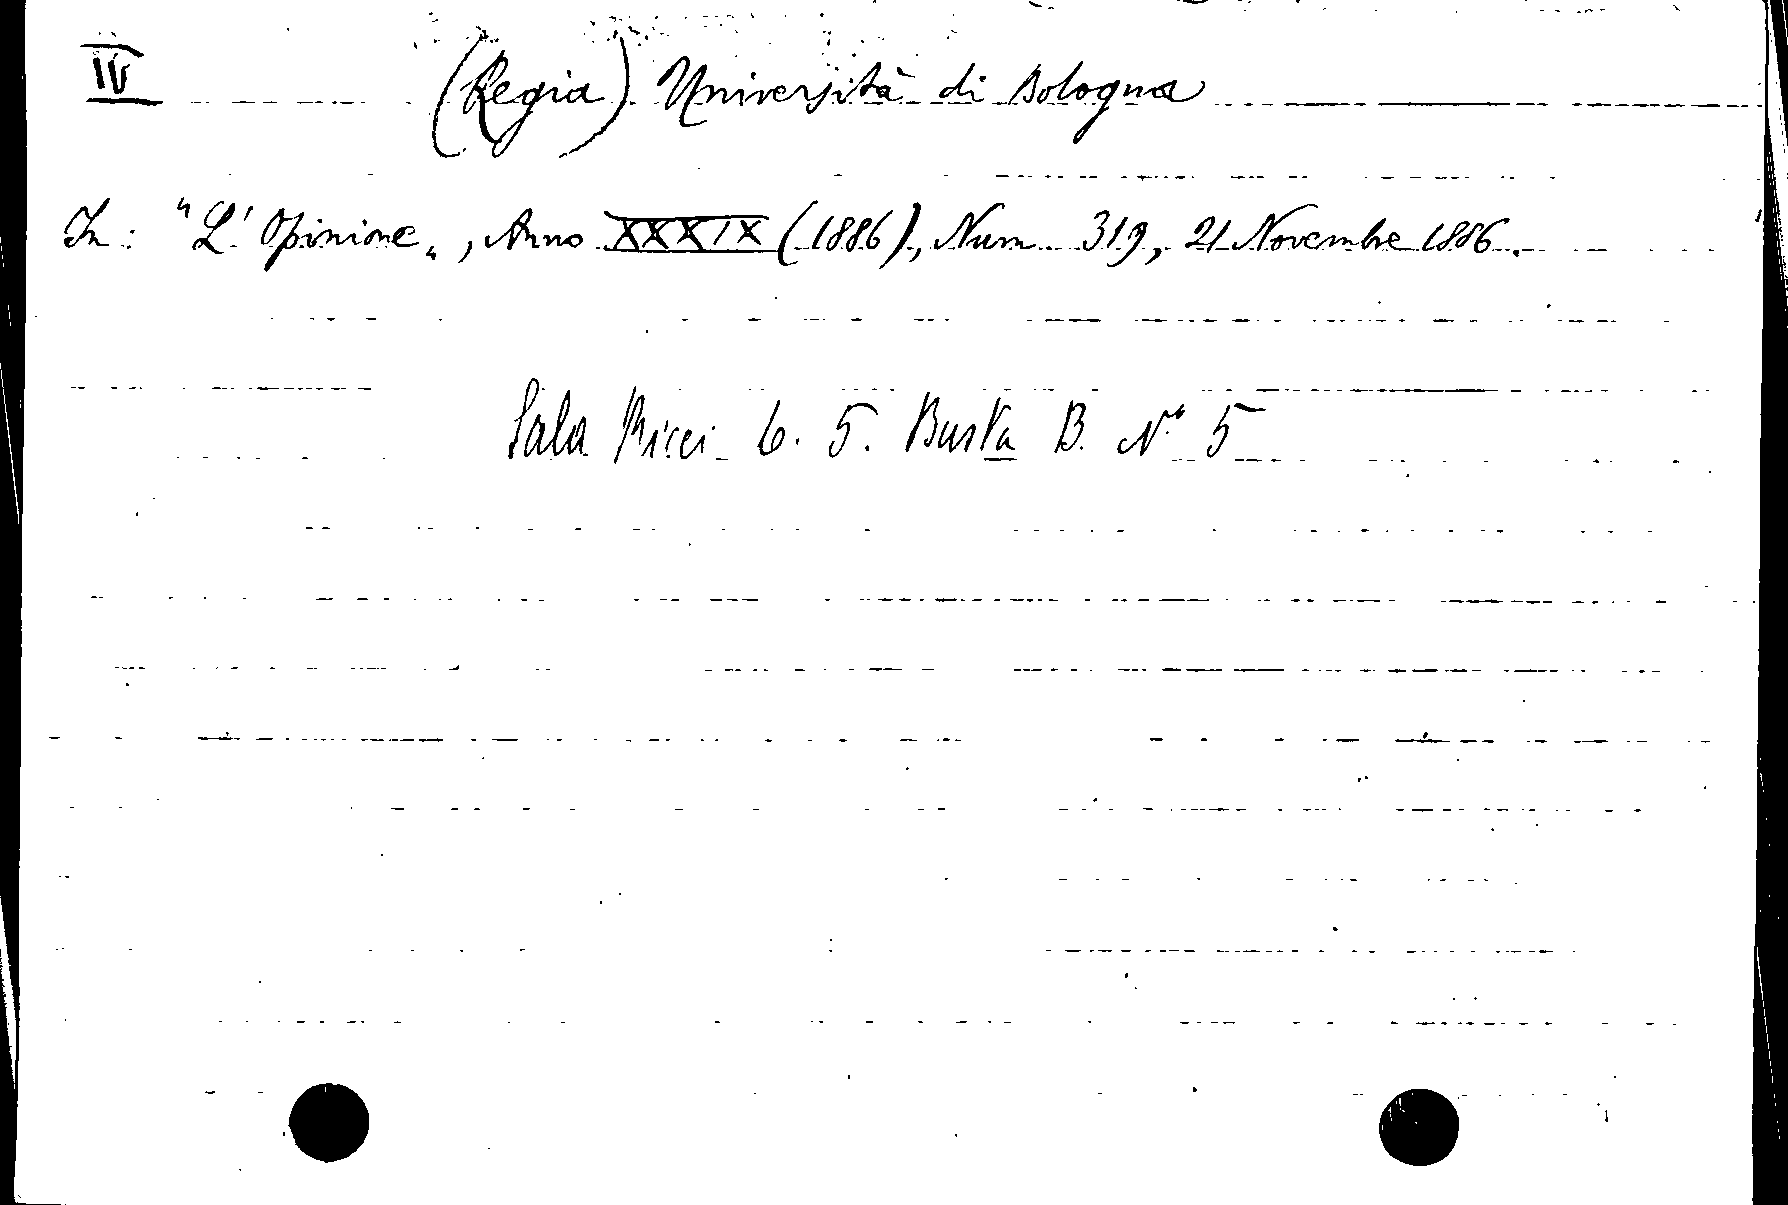 IV (Regia) Università di Bologna
In: "L'Opinione", Anno XXXIX (1886), Num. 319, 21 Novembre 1886.
Sala Ricci 6. 5. Busta B. N.° 5